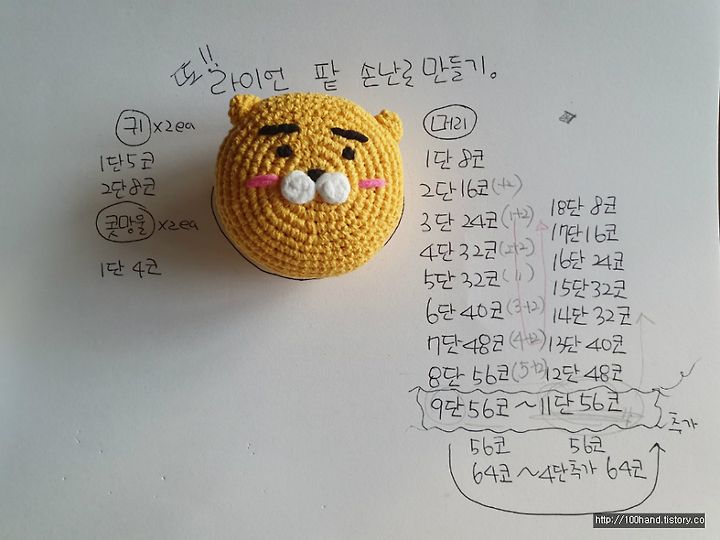 또!! 라이언 팥 손난로 만들기.
귀 x2ea
1단 5코
2단 8코
콧망울 x2ea
1단 4코
머리
1단 8코
2단 16코 (+2)
3단 24코 (1+2)
4단 32코 (2+2)
5단 32코 (1)
6단 40코 (3+2)
7단 48코 (4+2)
8단 56코 (5+2)
18단 8코
17단 16코
16단 24코
15단 32코
14단 32코
13단 40코
12단 48코
9단 56코 ~ 11단 56코
추가
56코 56코
64코 ~ 4단추가 64코
http://100hand.tistory.co